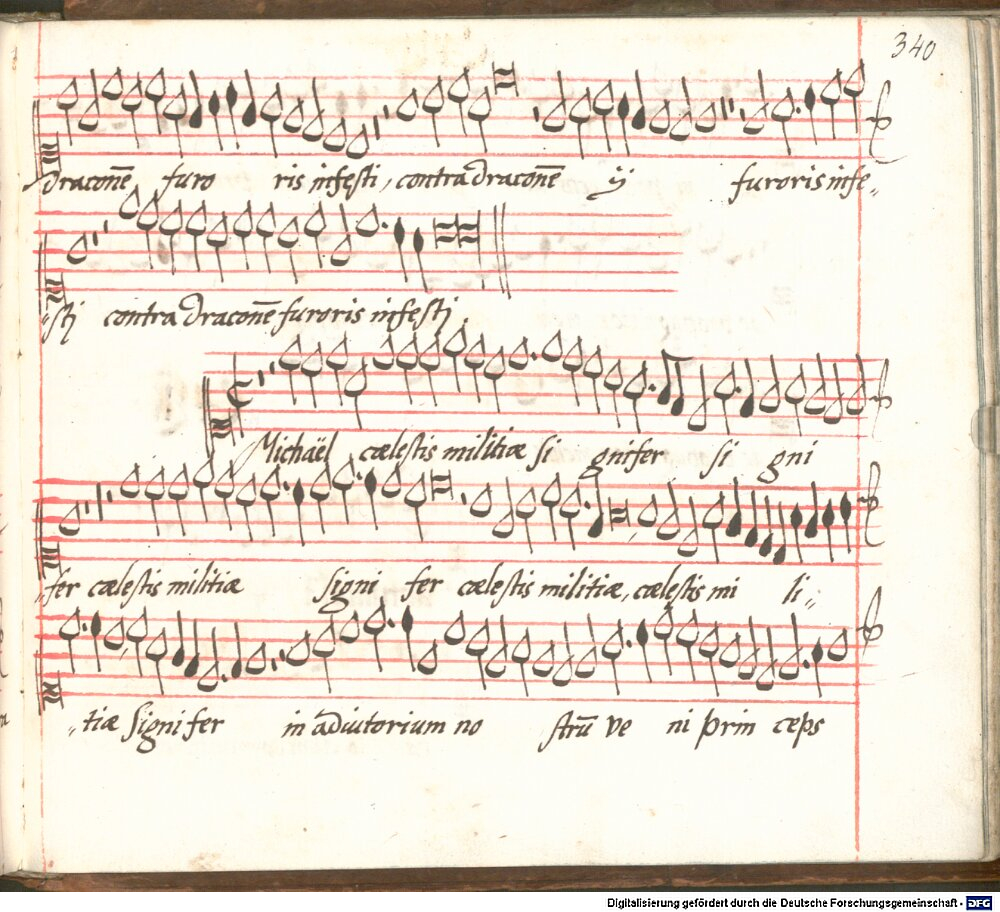 340
draconē furo ris infesti, contra draconē ij furoris infe„
„stj contra draconē furoris infestj.
Michaël cælestis militiæ si gnifer si gni
„fer cælestis militiæ signi fer cælestis militiæ, cælestis mi li„
„tiæ Signi fer in adiutorium no strū ve ni prin ceps
Digitalisierung gefördert durch die Deutsche Forschungsgemeinschaft - DFG